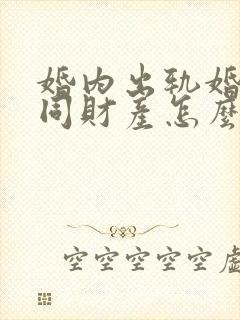 婚内出轨婚
同財產怎麼
空空空空空虛